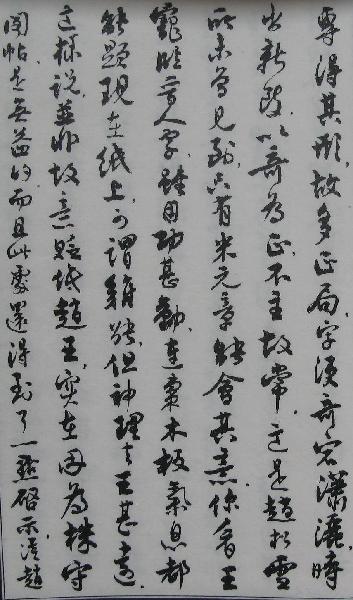 專得其形,故多正局,字須奇宕瀟灑,時
出新致,以奇為正,不主故常,這是趙松雪
所未見到,只有米元章能會其意,你看王
寵臨晉人字,雖用功甚勤,連棗木板氣息都
能顯現在紙上,可謂難能,但神理去王甚遠。
這樣說,並非故意貶低趙王,實在因為株守
閣帖,是無益的,而且此處還得到了一點啟示,從趙